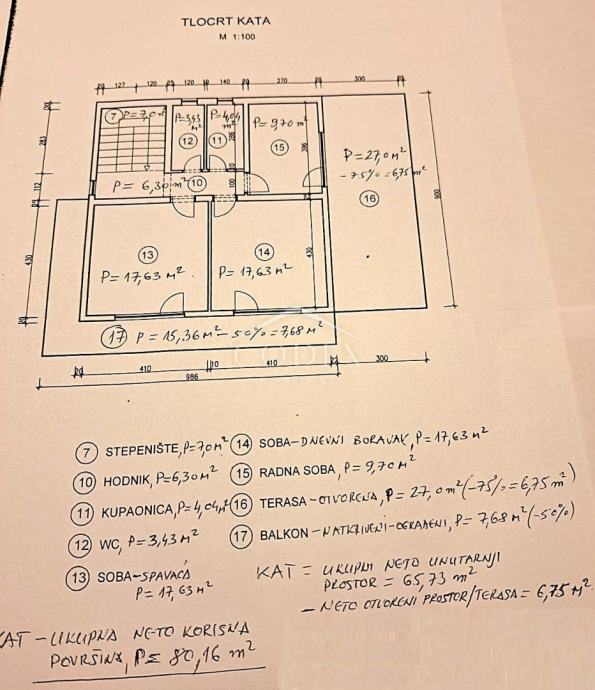 TLOCRT KATA
M 1:100
20 127 120 25 120 10 140 20 270 20 300 20
7 P=7,0 m²
P=3,43 m²
12
P=4,04 m²
11
P=9,70 m²
15
P=27,0 m²
-75%=6,75 m²
16
P= 6,30 m² 10
283
112
430
900
100
430
13
P=17,63 m²
14
P=17,63 m²
17 P = 15,36 m² - 50% = 7,68 m²
20 410 10 410 20 300
986
7 STEPENIŠTE, P=7,0 m²
10 HODNIK, P=6,30 m²
11 KUPAONICA, P=4,04 m²
12 WC, P=3,43 m²
13 SOBA-SPAVAĆA
P = 17,63 m²
14 SOBA-DNEVNI BORAVAK, P=17,63 m²
15 RADNA SOBA, P = 9,70 m²
16 TERASA-OTVORENA, P = 27,0 m² (-75% = 6,75 m²)
17 BALKON-NATKRIVENI-OGRAĐENI, P= 7,68 m² (-50%)
KAT = UKUPNI NETO UNUTARNJI
PROSTOR = 65,73 m²
- NETO OTVORENI PROSTOR/TERASA = 6,75 m²
KAT - UKUPNA NETO KORISNA
POVRŠINA, P= 80,16 m²